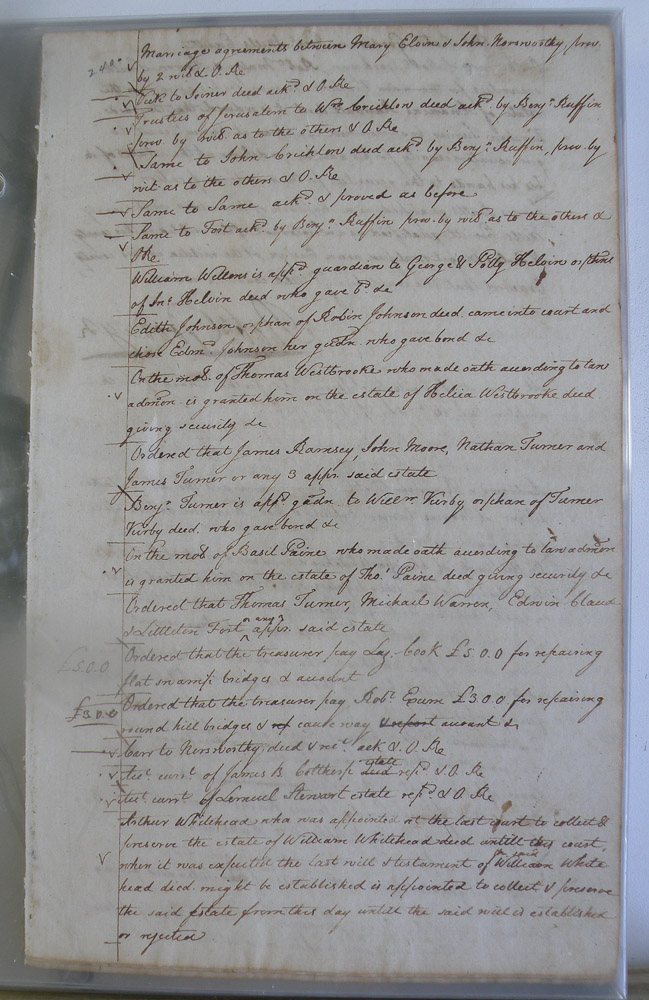 Marriage agreements between Mary Elvin & John Norsworthy, prov.
by 2 wits & O. Re
to Joiner deed ackd. & O. Re
Trustees of Jerusalem to Wm. Crichlow deed ackd. by Benja. Ruffin
prov. by wits. as to the others & O Re
Same to John Crichlow deed ackd. by Benja. Ruffin, prov. by
wit as to the others & O. Re
Same to Same ackd. & proved as before
Same to Fort ackd. by Benja. Ruffin prov. by wits. as to the others &
O Re
William Wellons is appd. guardian to George & Polly Helvin orphans
of Jno. Helvin deed who gave bd. &c
Edith Johnson, orphan of Robin Johnson deed. came into court and
chose Edmd. Johnson her gãdn. who gave bond &c
On the mot. of Thomas Westbrooke who made oath according to law
admõn. is granted him on the estate of Westbrooke deed
giving security &c
Ordered that James Ramsey, John Moore, Nathan Turner and
James Turner or any 3 appr. said estate
Benja. Turner is appd. gãdn. to Willm Kirby orphan of Turner
Kirby deed. who gave bond &c
On the mot. of Basil Paine who made oath according to law admõn
is granted him on the estate of Tho. Paine deed giving security &c
Ordered that Thomas Turner, Michael Warren, Edwin Claud
& Littleton Fort or any 3 appr. said estate
£5.0.0 Ordered that the treasurer pay Laz. Cook £5.0.0 for repairing
flat swamp bridges & account
£3.0.0 Ordered that the treasurer pay Robt. Exum £3.0.0 for repairing
round hill bridges & ref cause way & report account &
Carr to Norsworthy deed & rect. ack & O. Re
Acct. currt. of James B. estate deed retd. & O. Re
Acct. currt. of Lemuel Stewart estate retd. & O Re
Arthur Whitehead who was appointed at the last court to collect &
preserve the estate of William Whitehead deed untill this court,
when it was expected the last will & testament of the said William White
head deed. might be established is appointed to collect & preserve
the said estate from this day untill the said will is established
or rejected